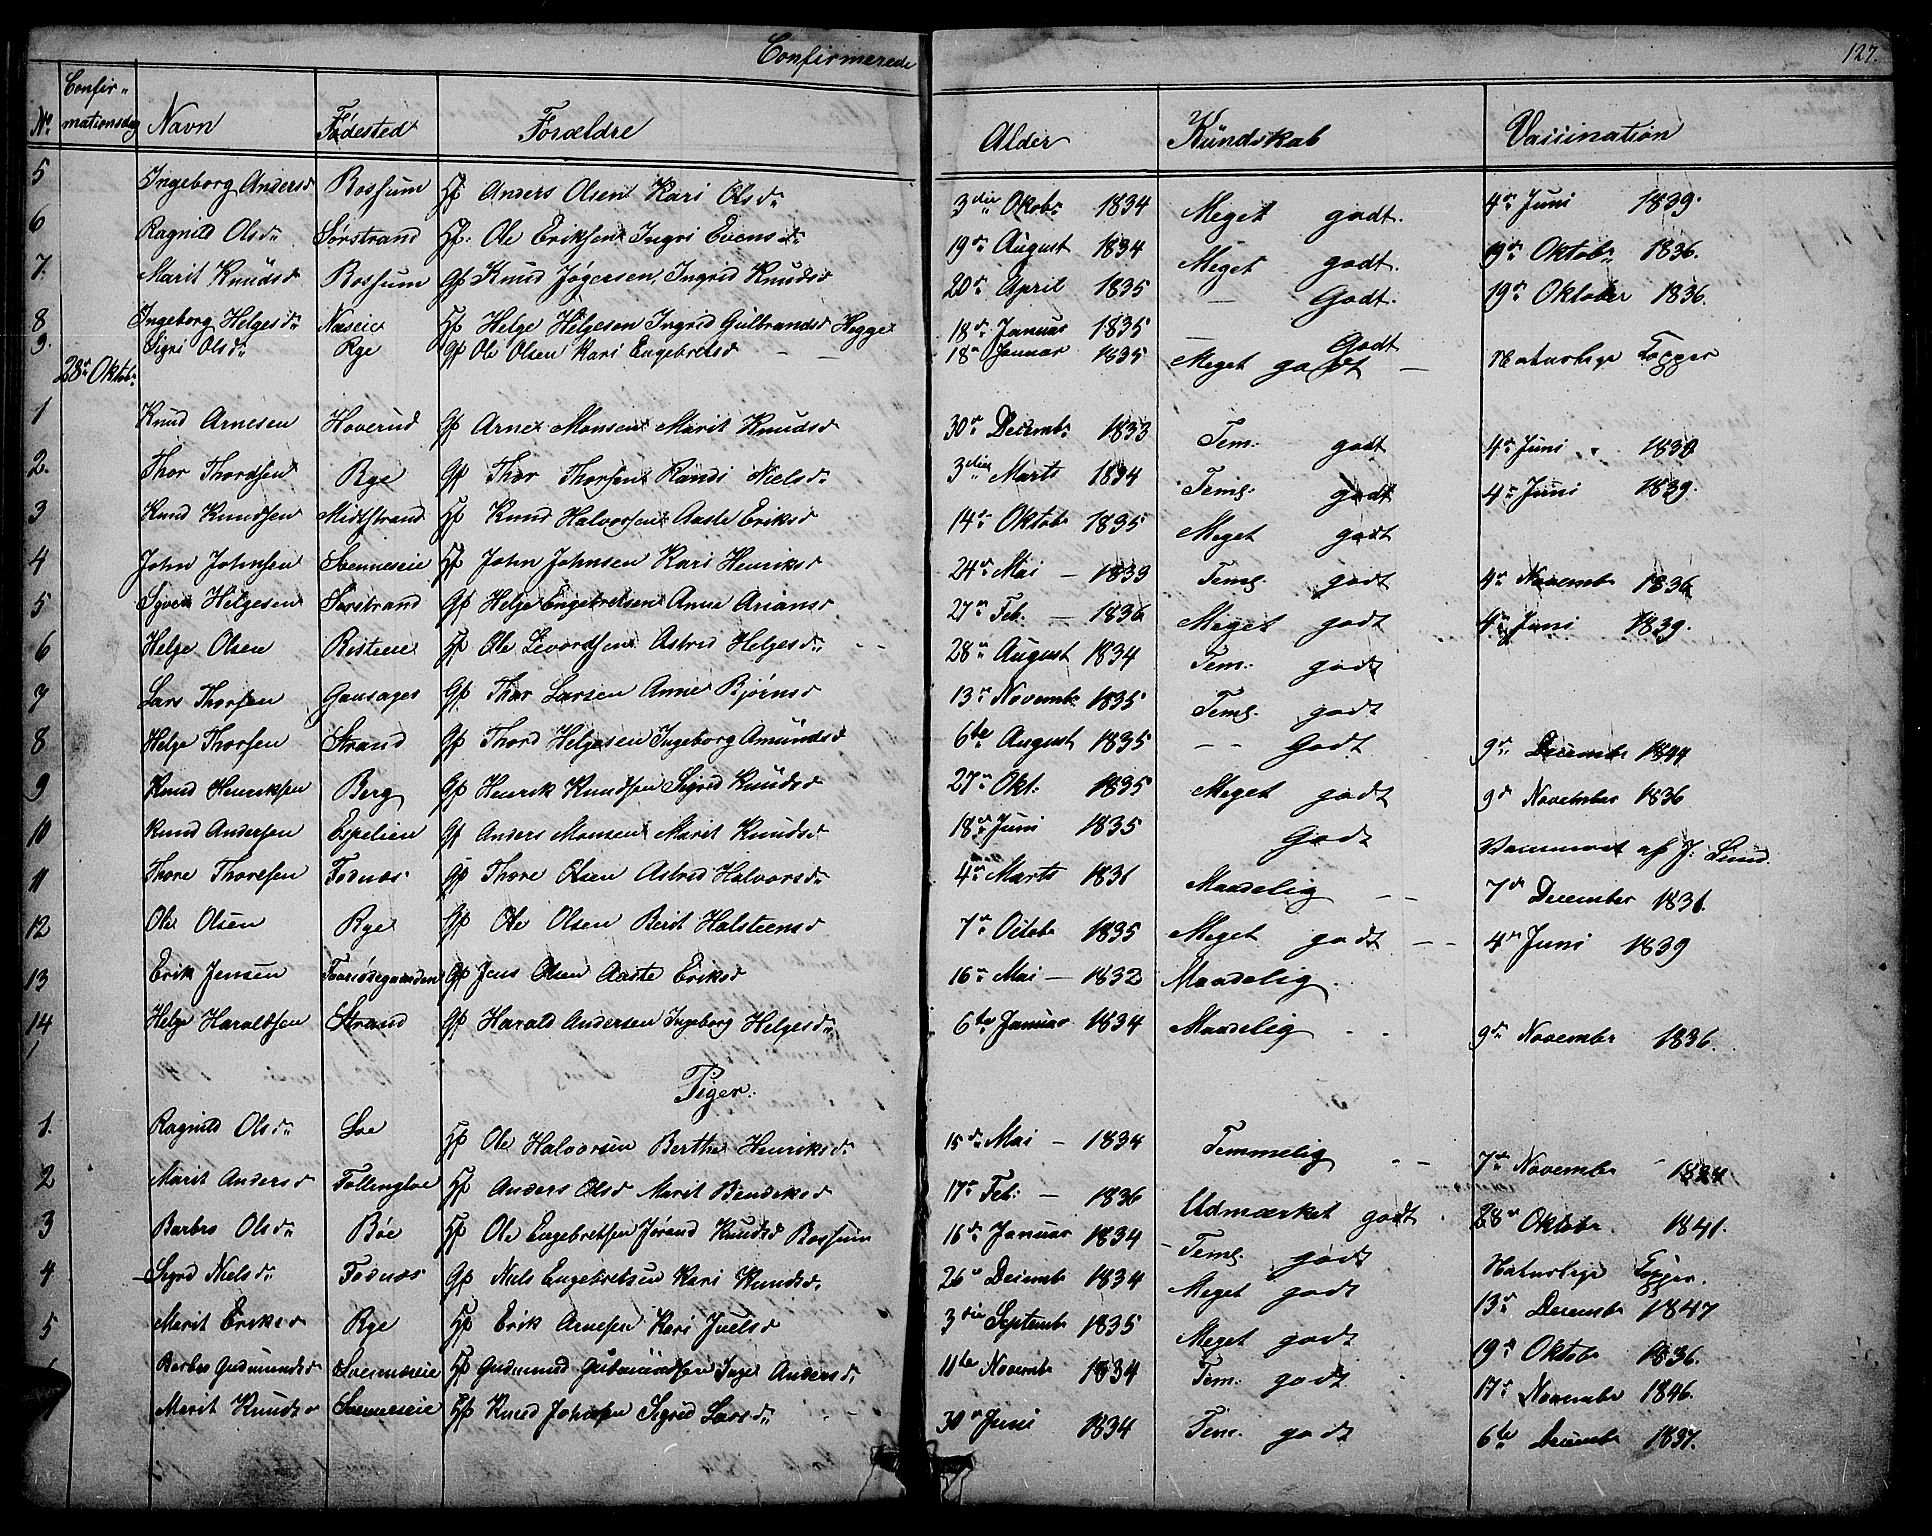 Confirmerede
127.
No Confirmationsdag Navn Fødested Forældre Alder Kundskab Vaccination
5 Ingeborg Andersd Rossum Gf Anders Olsen Kari Olsd 3die Oktob 1834 Meget godt. 4de Juni 1839.
6 Ragnild Olsd Sørstrand Gf. Ole Eriksen Ingri Evensd 19de August 1834 Meget godt. 19de Oktob 1836.
7. Marit Knudsd Rossum Gf Knud Jøgersen, Ingrid Knudsd 20de April 1835 — Godt. 19de Oktober 1836.
8 Ingeborg Helgesd Næseie Gf Helge Helgesen Ingrid Gulbrandsd Hegge 18de Januar 1835 — Godt
9. Sigri Olsd Rye Gf Ole Olsen Kari Engebretsd 18de Januar 1835 Meget godt — Naturlige Kopper
28de Oktob
1 Knud Arnesen Hoverud Gf Arne Monsen Marit Knudsd 30de Decemb 1833 Tem. godt 4de Juni 1839
2. Thor Thordsen Rye Gf Thor Thorsen Randi Nielsd 3die Marts 1834 Teml. godt 4de Juni 1839.
3 Knud Knudsen Midtstrand Gf Knud Halvorsen Aaste Eriksd 14de Oktob 1835 Meget godt
4 John Johnsen Svenneseie Gf John Johnsen Kari Henriksd 24de Mai — 1833 Teml. godt 4de Novemb 1836
5 Syver Helgesen Sørstrand Gf Helge Engebretsen Anne Ariansd 27de Feb. — 1836 Meget godt 4de Juni 1839.
6 Helge Olsen Risteie Gf Ole Sevordsen Astrid Helgesd 28de August 1834 Tem. godt
7 Lars Thorsen Gausager Gf Thor Larsen Anne Bjørnsd 13de Novemb 1835 Teml. godt
8 Helge Thorsen Strand Gf Thord Helgesen Ingeborg Amundsd 6te August 1835 -- Godt 9de Decemb 1844
9 Knud Henriksen Berg Gf Henrik Knudsen Sigrid Knudsd 27de Okt. 1835 Meget godt 9de November 1836
10 Knud Andersen Espelien Gf Anders Monsen Marit Knudsd 18de Juni 1835 Godt af J. Lund.
11 Thore Thoresen Fodnæs Gf Thore Olsen Astrid Halvorsd 4de Marts 1831 Maadelig -- 7de December 1836.
12 Ole Olsen Rye Gf Ole Olsen Berit Halsteensd 7de Octob 1835 Meget godt -- 4de Juni 1839
13 Erik Jensen Gf Jens Olsen Aaste Eriksd 16de Mai — 1832 Maadelig.
14 Helge Haraldsen Strand Gf Harald Andersen Ingeborg Helgesd 6te Januar 1834 Maadelig -- 9de Novemb 1836.
Piger.
1. Ragnild Olsd Loe Gf Ole Halvorsen Berthe Henriksd 15de Mai — 1834 Temmelig -- 7de Novemb
2 Marit Andersd Follingloe Gf Anders Olsd Marit Bendiksd 17de Feb. — 1836 Udmærket godt 28de Oktob 1841.
3 Barbro Olsd Bøe Gf Ole Engebretsen Jørand Knudsd Rossum 16de Januar 1834 Teml. godt
4 Sigrd Nielsd Fodnæs Gf Niels Engebretsen Kari Knudsd 26de Decemb 1834 Meget godt Naturlige Kopper.
5 Marit Eriksd Rye Gf Erik Arnesen Kari Juelsd 3die Septemb 1835 Meget godt 13de Decemb 1847
Barbro Gudmundsd Svenneseie Gf Gudmund Gudmundsen Inge Andersd 11te Novemb 1834 Tem. godt 19de Oktob 1836.
Marit Knudsd Svenneseie Gf Knud Johnsen Sigrid Larsd 30de Juni 1834 Tem. godt 17de Novemb 1846.
6te Decemb 1837.